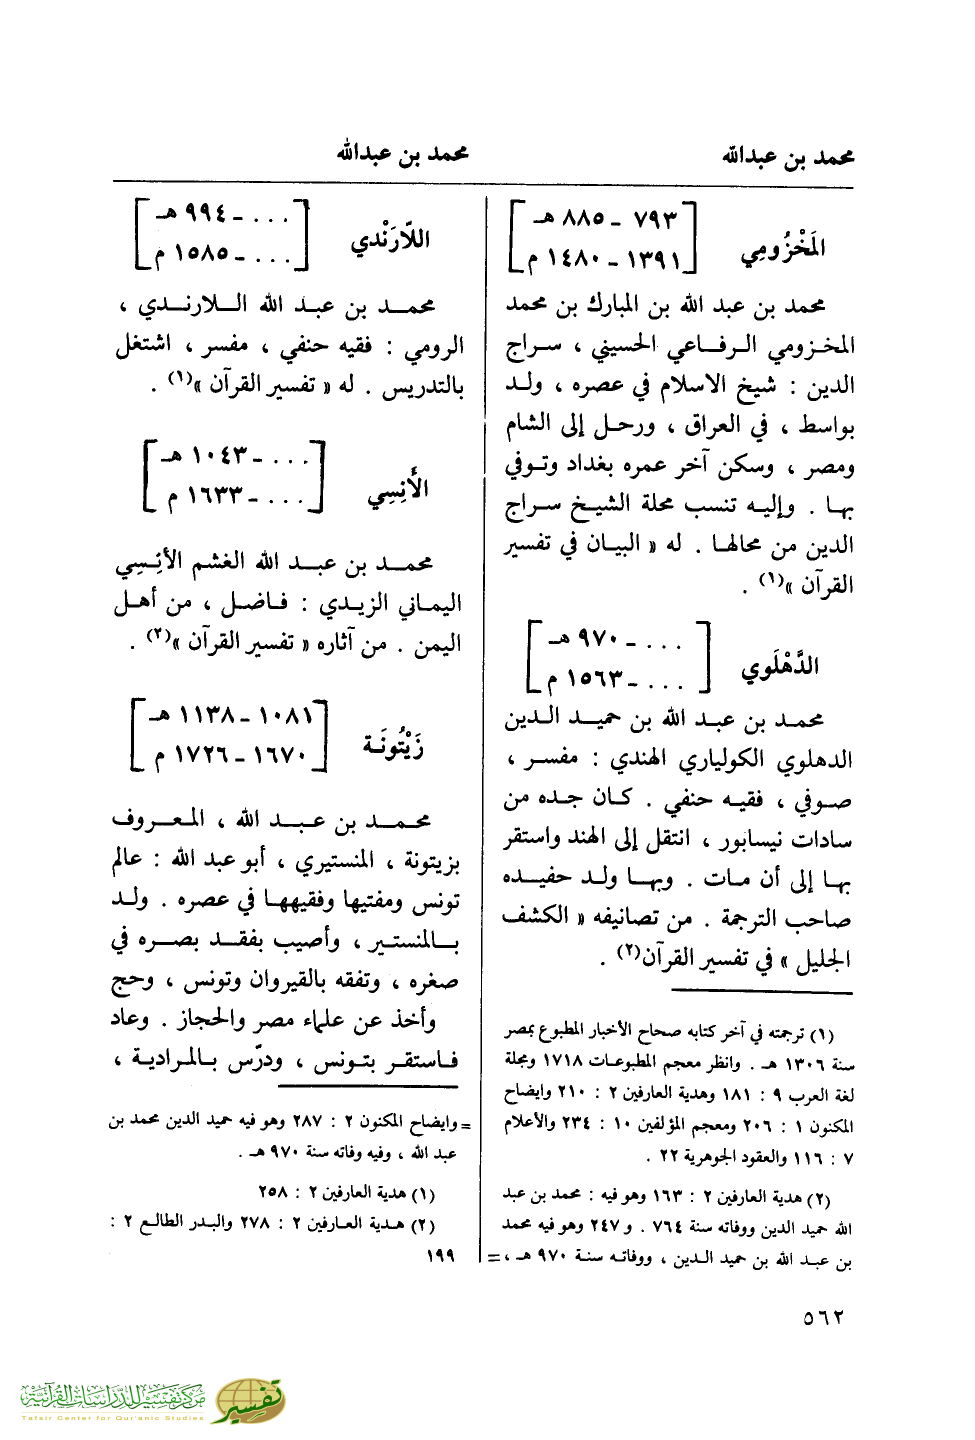 محمد بن عبدالله
محمد بن عبدالله
المَخْزُومي
[ ٧٩٣ - ٨٨٥ هـ
١٣٩١ - ١٤٨٠ م ]
محمد بن عبد الله بن المبارك بن محمد
المخزومي الرفاعي الحسيني ، سراج
الدين : شيخ الاسلام في عصره ، ولد
بواسط ، في العراق ، ورحل إلى الشام
ومصر ، وسكن آخر عمره بغداد وتوفي
بها . وإليه تنسب محلة الشيخ سراج
الدين من محالها . له « البيان في تفسير
القرآن »(١) .
الدَّهْلَوي
[ . . . - ٩٧٠ هـ
. . . - ١٥٦٣ م ]
محمد بن عبد الله بن حميد الدين
الدهلوي الكولياري الهندي : مفسر ،
صوفي ، فقيه حنفي . كان جده من
سادات نيسابور ، انتقل إلى الهند واستقر
بها إلى أن مات . وبها ولد حفيده
صاحب الترجمة . من تصانيفه « الكشف
الجليل » في تفسير القرآن(٢) .
(١) ترجمته في آخر كتابه صحاح الأخبار المطبوع بمصر
سنة ١٣٠٦ هـ . وانظر معجم المطبوعات ١٧١٨ ومجلة
لغة العرب ٩ : ١٨١ وهدية العارفين ٢ : ٢١٠ وايضاح
المكنون ١ : ٢٠٦ ومعجم المؤلفين ١٠ : ٢٣٤ والأعلام
٧ : ١١٦ والعقود الجوهرية ٢٢ .
(٢) هدية العارفين ٢ : ١٦٣ وهو فيه : محمد بن عبد
الله حميد الدين ووفاته سنة ٧٦٤ . و ٢٤٧ وهو فيه محمد
بن عبد الله بن حميد الدين ، ووفاته سنة ٩٧٠ هـ ، =
اللاّرَنْدي
[ . . . - ٩٩٤ هـ
. . . - ١٥٨٥ م ]
محمد بن عبد الله اللارندي ،
الرومي : فقيه حنفي ، مفسر ، اشتغل
بالتدريس . له « تفسير القرآن »(١) .
الأَنِسِي
[ . . . - ١٠٤٣ هـ
. . . - ١٦٣٣ م ]
محمد بن عبد الله الغشم الأنِسِي
اليماني الزيدي : فاضل ، من أهل
اليمن . من آثاره « تفسير القرآن »(٢) .
زَيْتُونَة
[ ١٠٨١ - ١١٣٨ هـ
١٦٧٠ - ١٧٢٦ م ]
محمد بن عبد الله ، المعروف
بزيتونة ، المنستيري ، أبو عبد الله : عالم
تونس ومفتيها وفقيهها في عصره . ولد
بالمنستير ، وأصيب بفقد بصره في
صغره ، وتفقه بالقيروان وتونس ، وحج
وأخذ عن علماء مصر والحجاز . وعاد
فاستقر بتونس ، ودرّس بالمرادية ،
= وايضاح المكنون ٢ : ٢٨٧ وهو فيه حميد الدين محمد بن
عبد الله ، وفيه وفاته سنة ٩٧٠ هـ .
(١) هدية العارفين ٢ : ٢٥٨
(٢) هدية العارفين ٢ : ٢٧٨ والبدر الطالع ٢ :
١٩٩
٥٦٢
مركز تفسير للدراسات القرآنية
Tafsir Center for Qur'anic Studies
تفسير